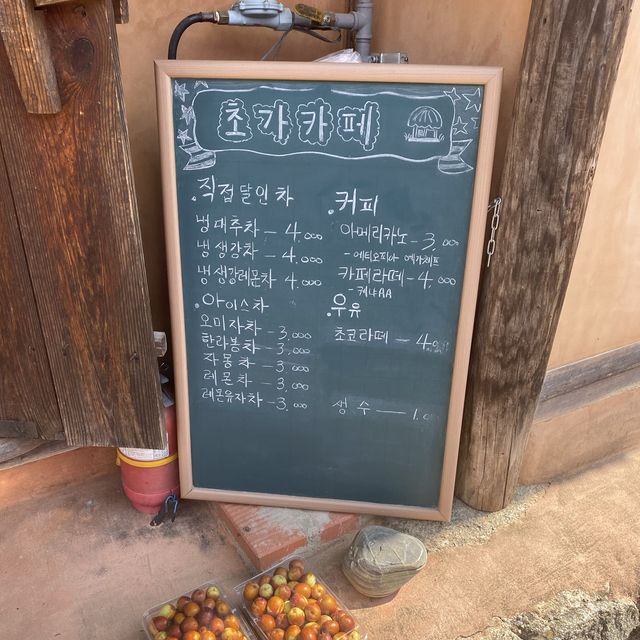 초가카페
.직접달인차
냉대추차 - 4.000
냉생강차 - 4.000
냉생강레몬차 4.000
.아이스차
오미자차 - 3.000
한라봉차 - 3.000
자몽차 - 3.000
레몬차 - 3.000
레몬유자차 - 3.000
.커피
아메리카노 - 3.000
- 에티오피아 예가체프
카페라떼 - 4.000
- 케냐AA
.우유
초코라떼 - 4.000
생수 — 1.000